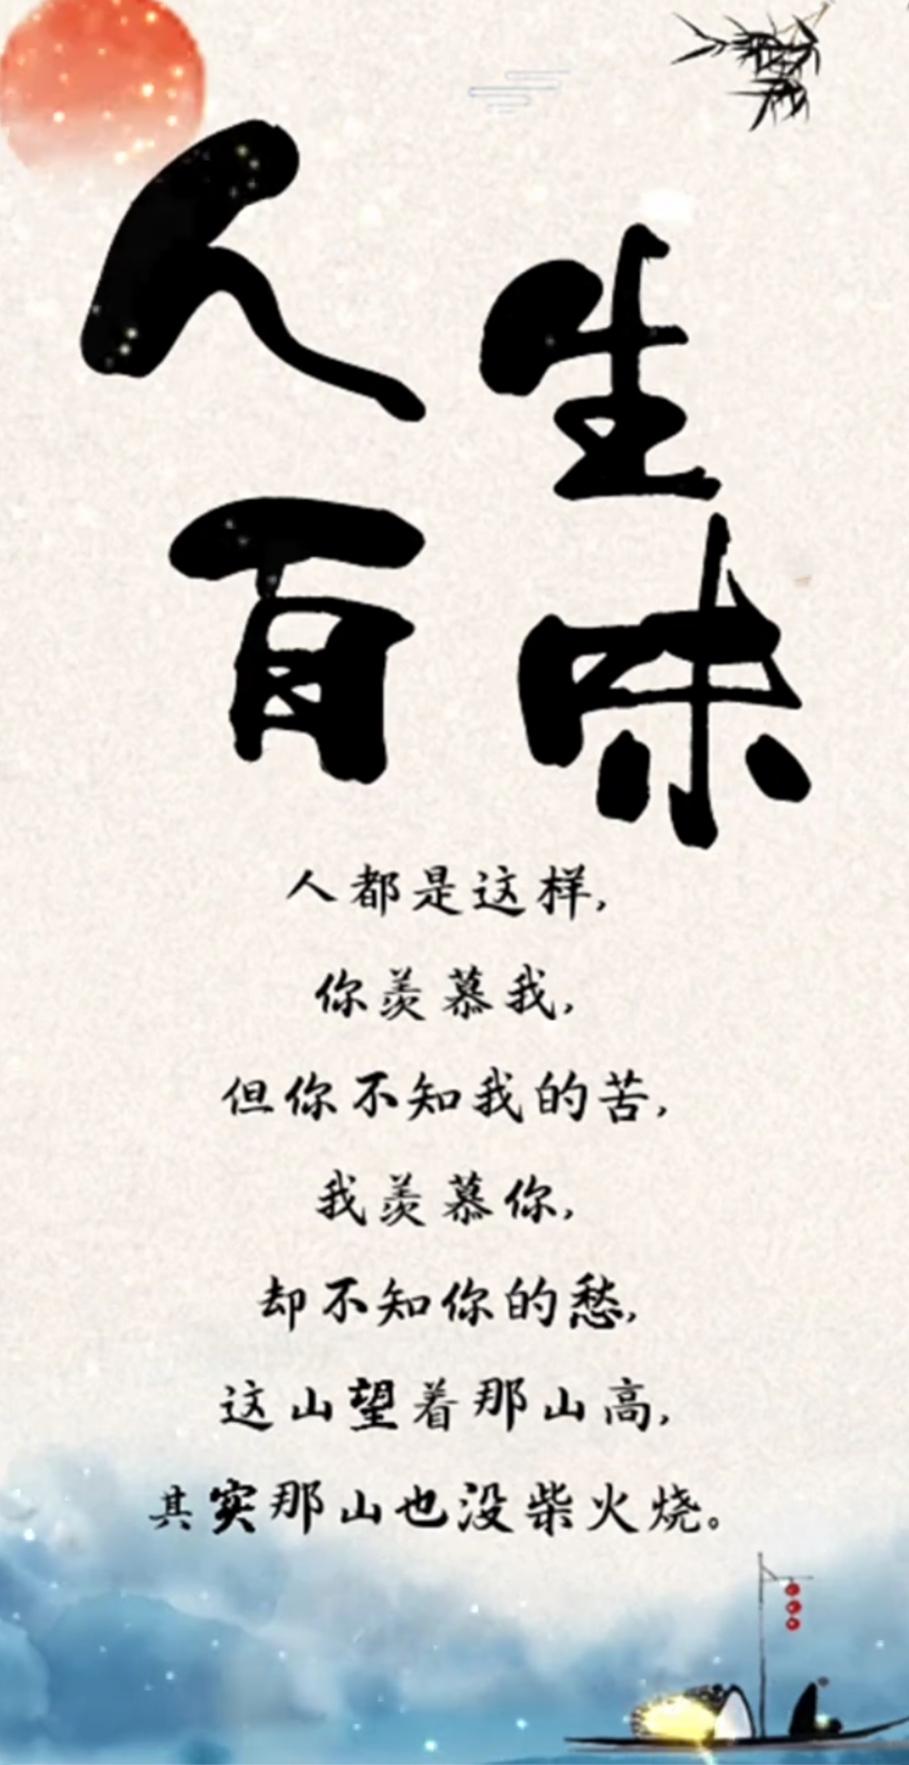 人生
百味
人都是这样，
你羡慕我，
但你不知我的苦，
我羡慕你，
却不知你的愁，
这山望着那山高，
其实那山也没柴火烧。